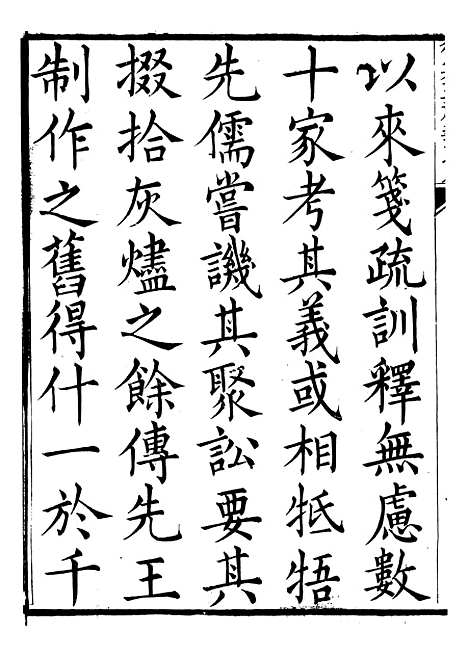 以來箋疏訓釋無慮數
十家考其義或相牴牾
先儒嘗譏其聚訟要其
掇拾灰燼之餘傳先王
制作之舊得什一於千